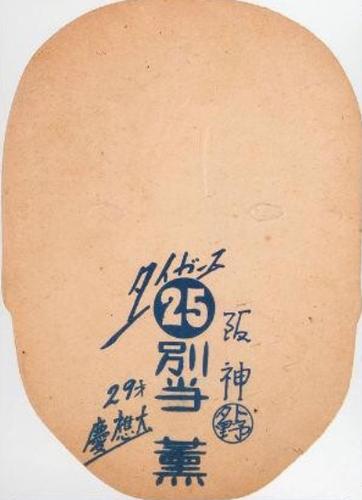 タイガース
25
阪神
外野
別当 薫
29才
慶應大